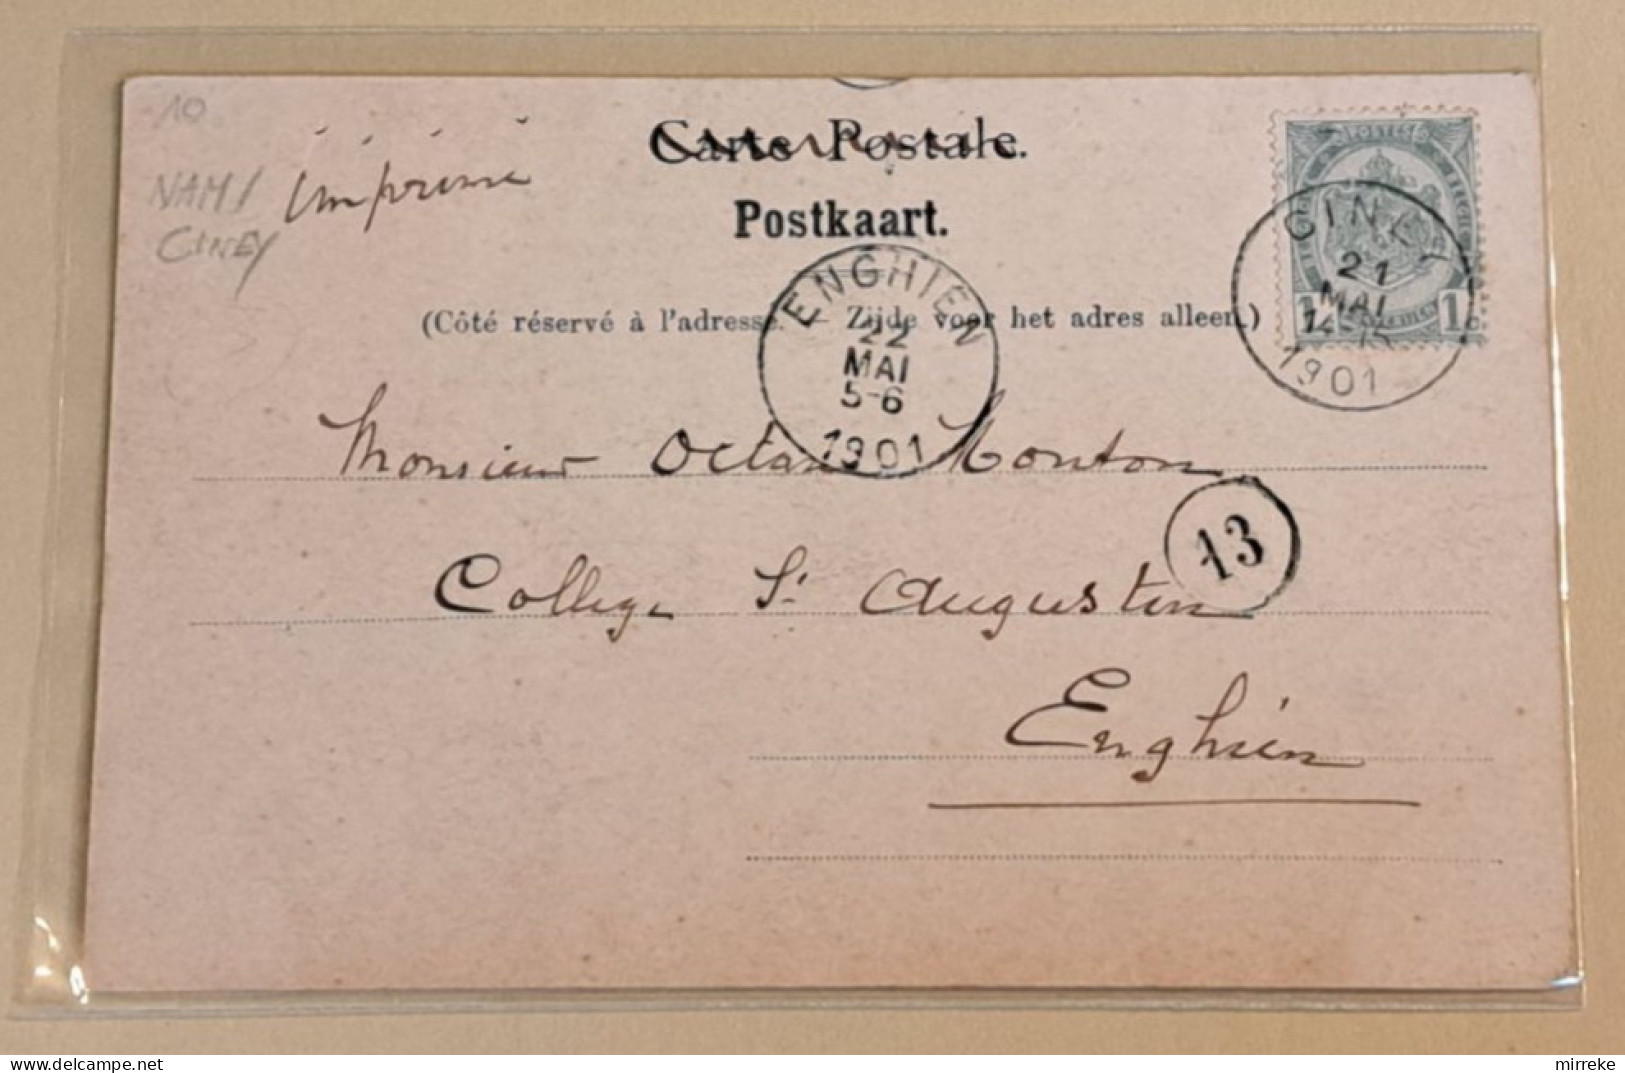 10
NAM/
CINEY
imprimé
Carte Postale.
Postkaart.
(Côté réservé à l'adresse. — Zijde voor het adres alleen.)
POSTES
1 1c
CINEY
21
MAI
1901
ENGHIEN
22
MAI
5-6
1901
Monsieur Octave Mouton
13
College St Augustin
Enghien
mirreke